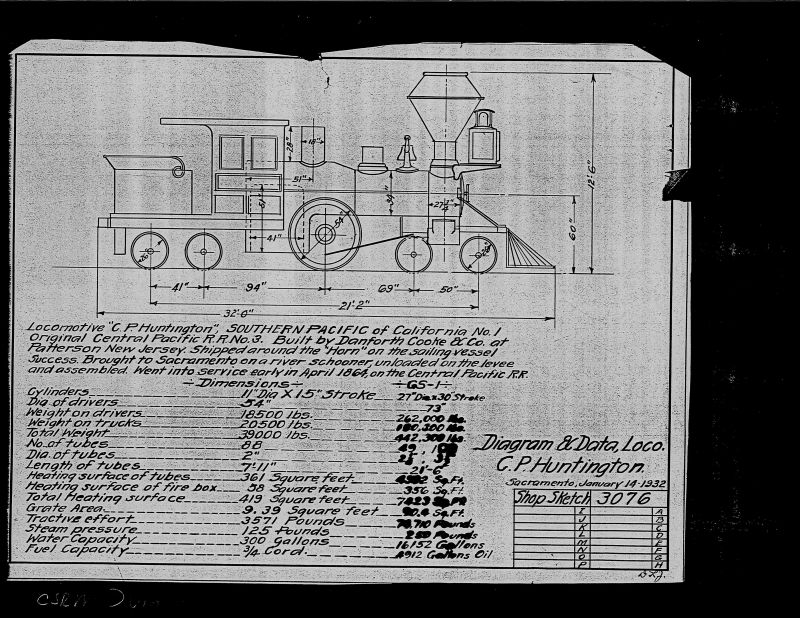 12'-6"
28"
18"
51"
61"
41"
54"
39"
27 1/4"
60"
26"
41"
94"
69"
50"
21'-2"
32'-6"
Locomotive "C.P. Huntington", SOUTHERN PACIFIC of California No. 1
Original Central Pacific R.R. No. 3. Built by Danforth Cooke & Co. at
Patterson New Jersey. Shipped around the "Horn" on the sailing vessel
Success. Brought to Sacramento on a river schooner, unloaded on the levee
and assembled. Went into service early in April 1864, on the Central Pacific R.R.
Dimensions GS-1
Cylinders 11" Dia X 15" Stroke 27" Dia x 30" Stroke
Dia of drivers 54" 73"
Weight on drivers 18500 lbs. 262,000 lbs.
Weight on trucks 20500 lbs. lbs.
Total Weight 39000 lbs. 442,300 lbs.
No. of tubes 88 49,
Dia. of tubes 2"
Length of tubes 7'-11" 21'-6"
Heating surface of tubes 361 Square feet Sq. Ft.
Heating surface of fire box 58 Square feet 356 Sq. Ft.
Total Heating surface 419 Square feet
Grate Area 9.39 Square feet 90.4 Sq. Ft.
Tractive effort 3571 Pounds Pounds
Steam pressure 125 Pounds Pounds
Water Capacity 300 Gallons 16152 Gallons
Fuel Capacity 3/4 Cord. 4912 Gallons Oil
Diagram & Data, Loco.
C.P. Huntington.
Sacramento, January 14-1932
Shop Sketch 3076
I A
J B
K C
L D
M E
N F
O G
P H
CSRM